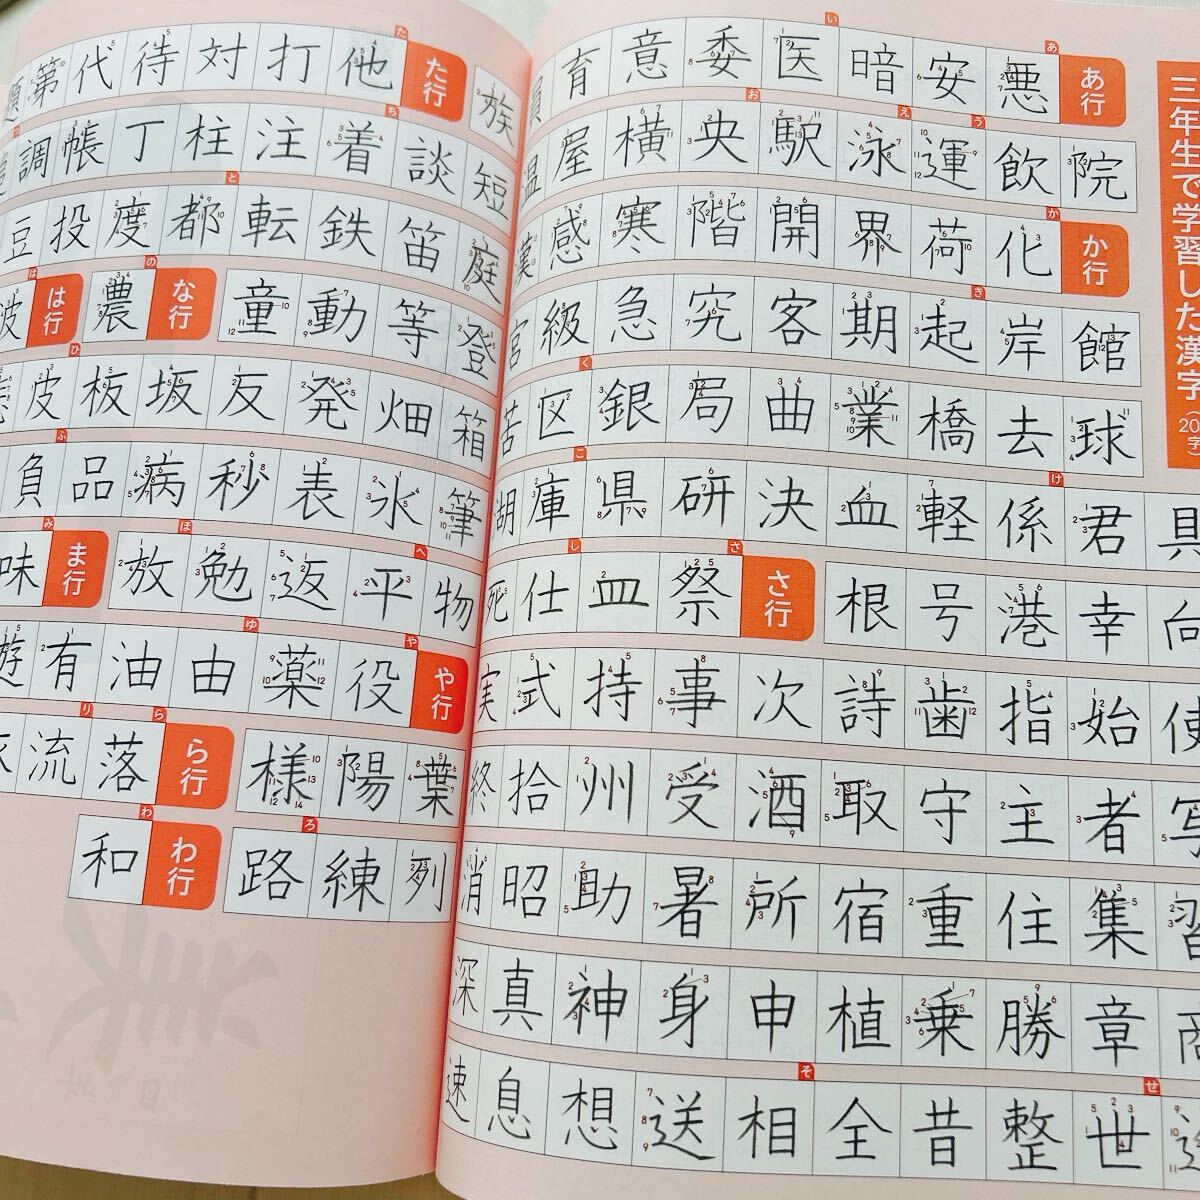 三年生で学習した漢字
あ行 悪 安 暗 医 委 意 育 員
院 飲 運 泳 駅 央 横 屋 温
か行 化 荷 界 開 階 寒 感 漢
館 岸 起 期 客 究 急 級 宮
球 去 橋 業 曲 局 銀 区 苦
具 君 係 軽 血 決 研 県 庫 湖
向 幸 港 号 根 さ行 祭 皿 仕 死
使 始 指 歯 詩 次 事 持 式 実
写 者 主 守 取 酒 受 州 拾 終
習 集 住 重 宿 所 暑 助 昭 消
商 章 勝 乗 植 申 身 神 真 深
進 世 整 昔 全 相 送 想 息 速
族 た行 他 打 対 待 代 第 題
短 談 着 注 柱 丁 帳 調
庭 笛 鉄 転 都 度 投 豆
登 等 動 童 な行 農 は行 波
箱 畑 発 反 坂 板 皮 悲
筆 氷 表 秒 病 品 負
物 平 返 勉 放 ま行 味
や行 役 薬 由 油 有 遊
葉 陽 様 ら行 落 流 旅
列 練 路 わ行 和